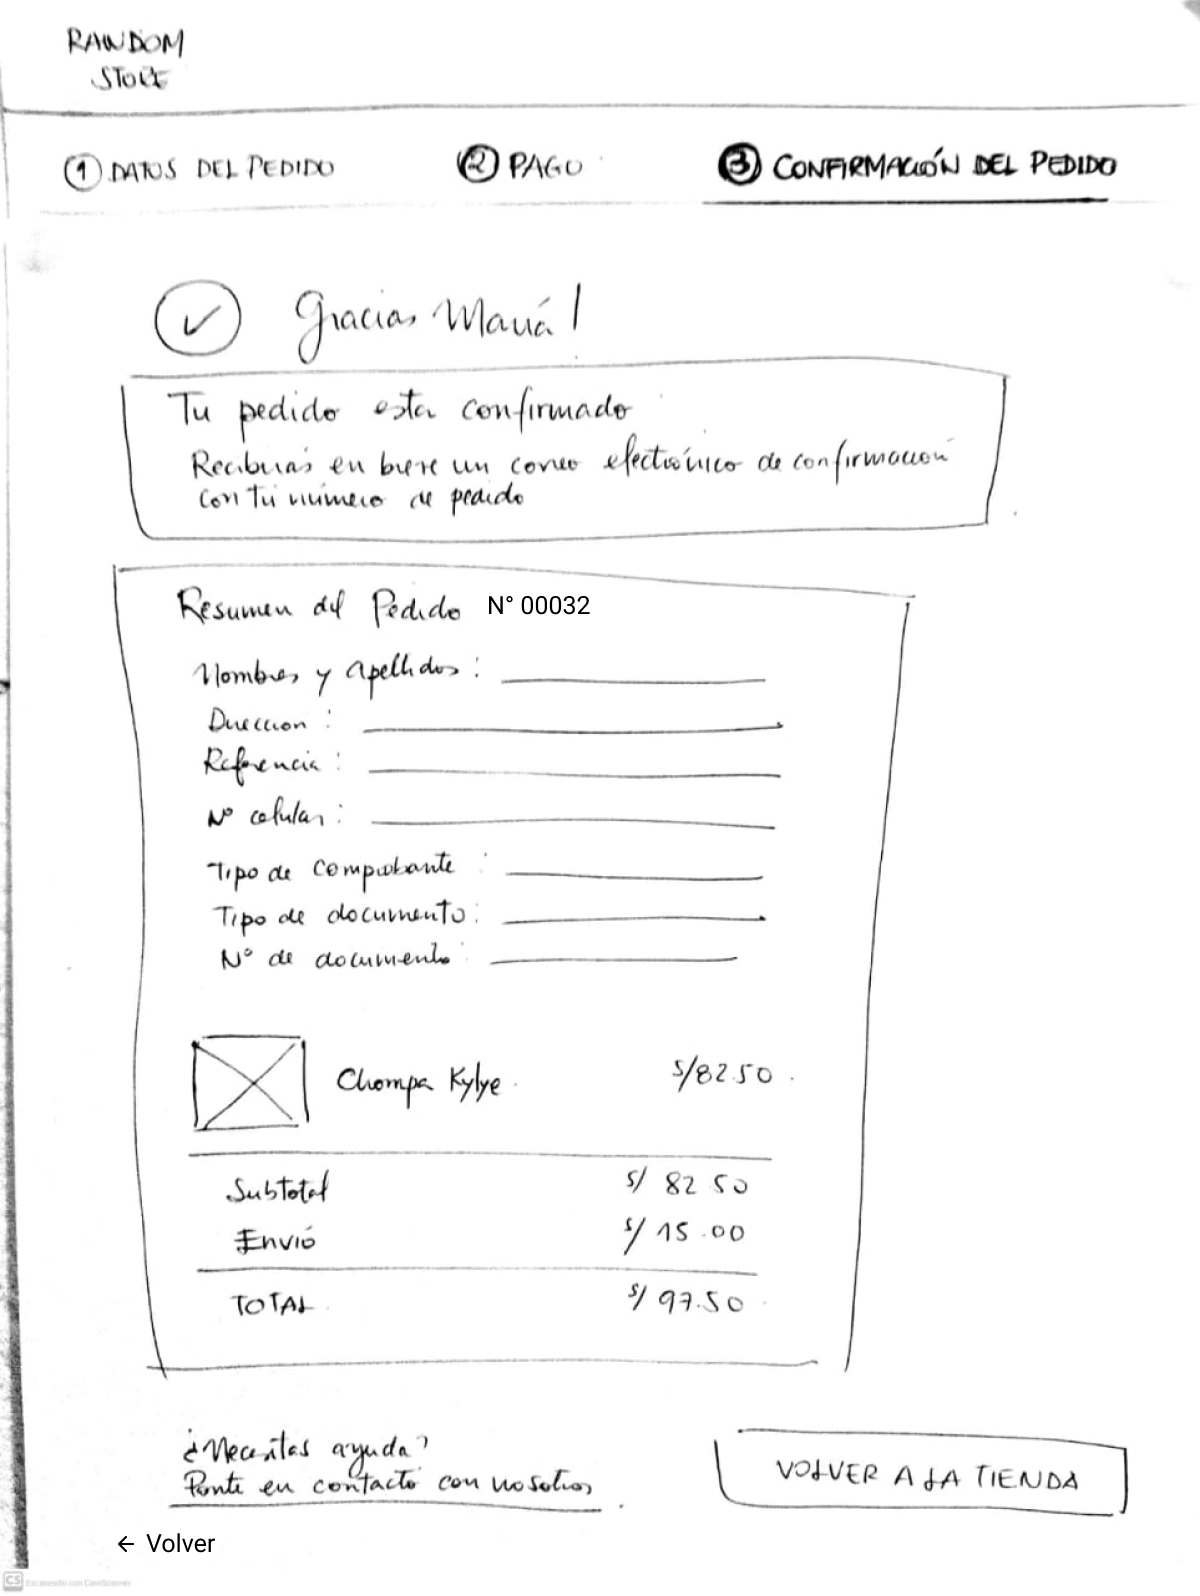 RANDOM
STORE
1 DATOS DEL PEDIDO 2 PAGO 3 CONFIRMACIÓN DEL PEDIDO
Gracias María!
Tu pedido esta confirmado
Recibirás en breve un correo electrónico de confirmacion
con tu número de pedido
Resumen del Pedido N° 00032
Nombres y apellidos :
Direccion :
Referencia :
N° celular :
Tipo de comprobante :
Tipo de documento :
N° de documento :
Chompa Kylye S/82.50
Subtotal S/ 82 50
Envió S/ 15.00
TOTAL S/ 97.50
¿Necesitas ayuda?
Ponte en contacto con nosotros
VOLVER A LA TIENDA
← Volver
CS Escaneado con CamScanner